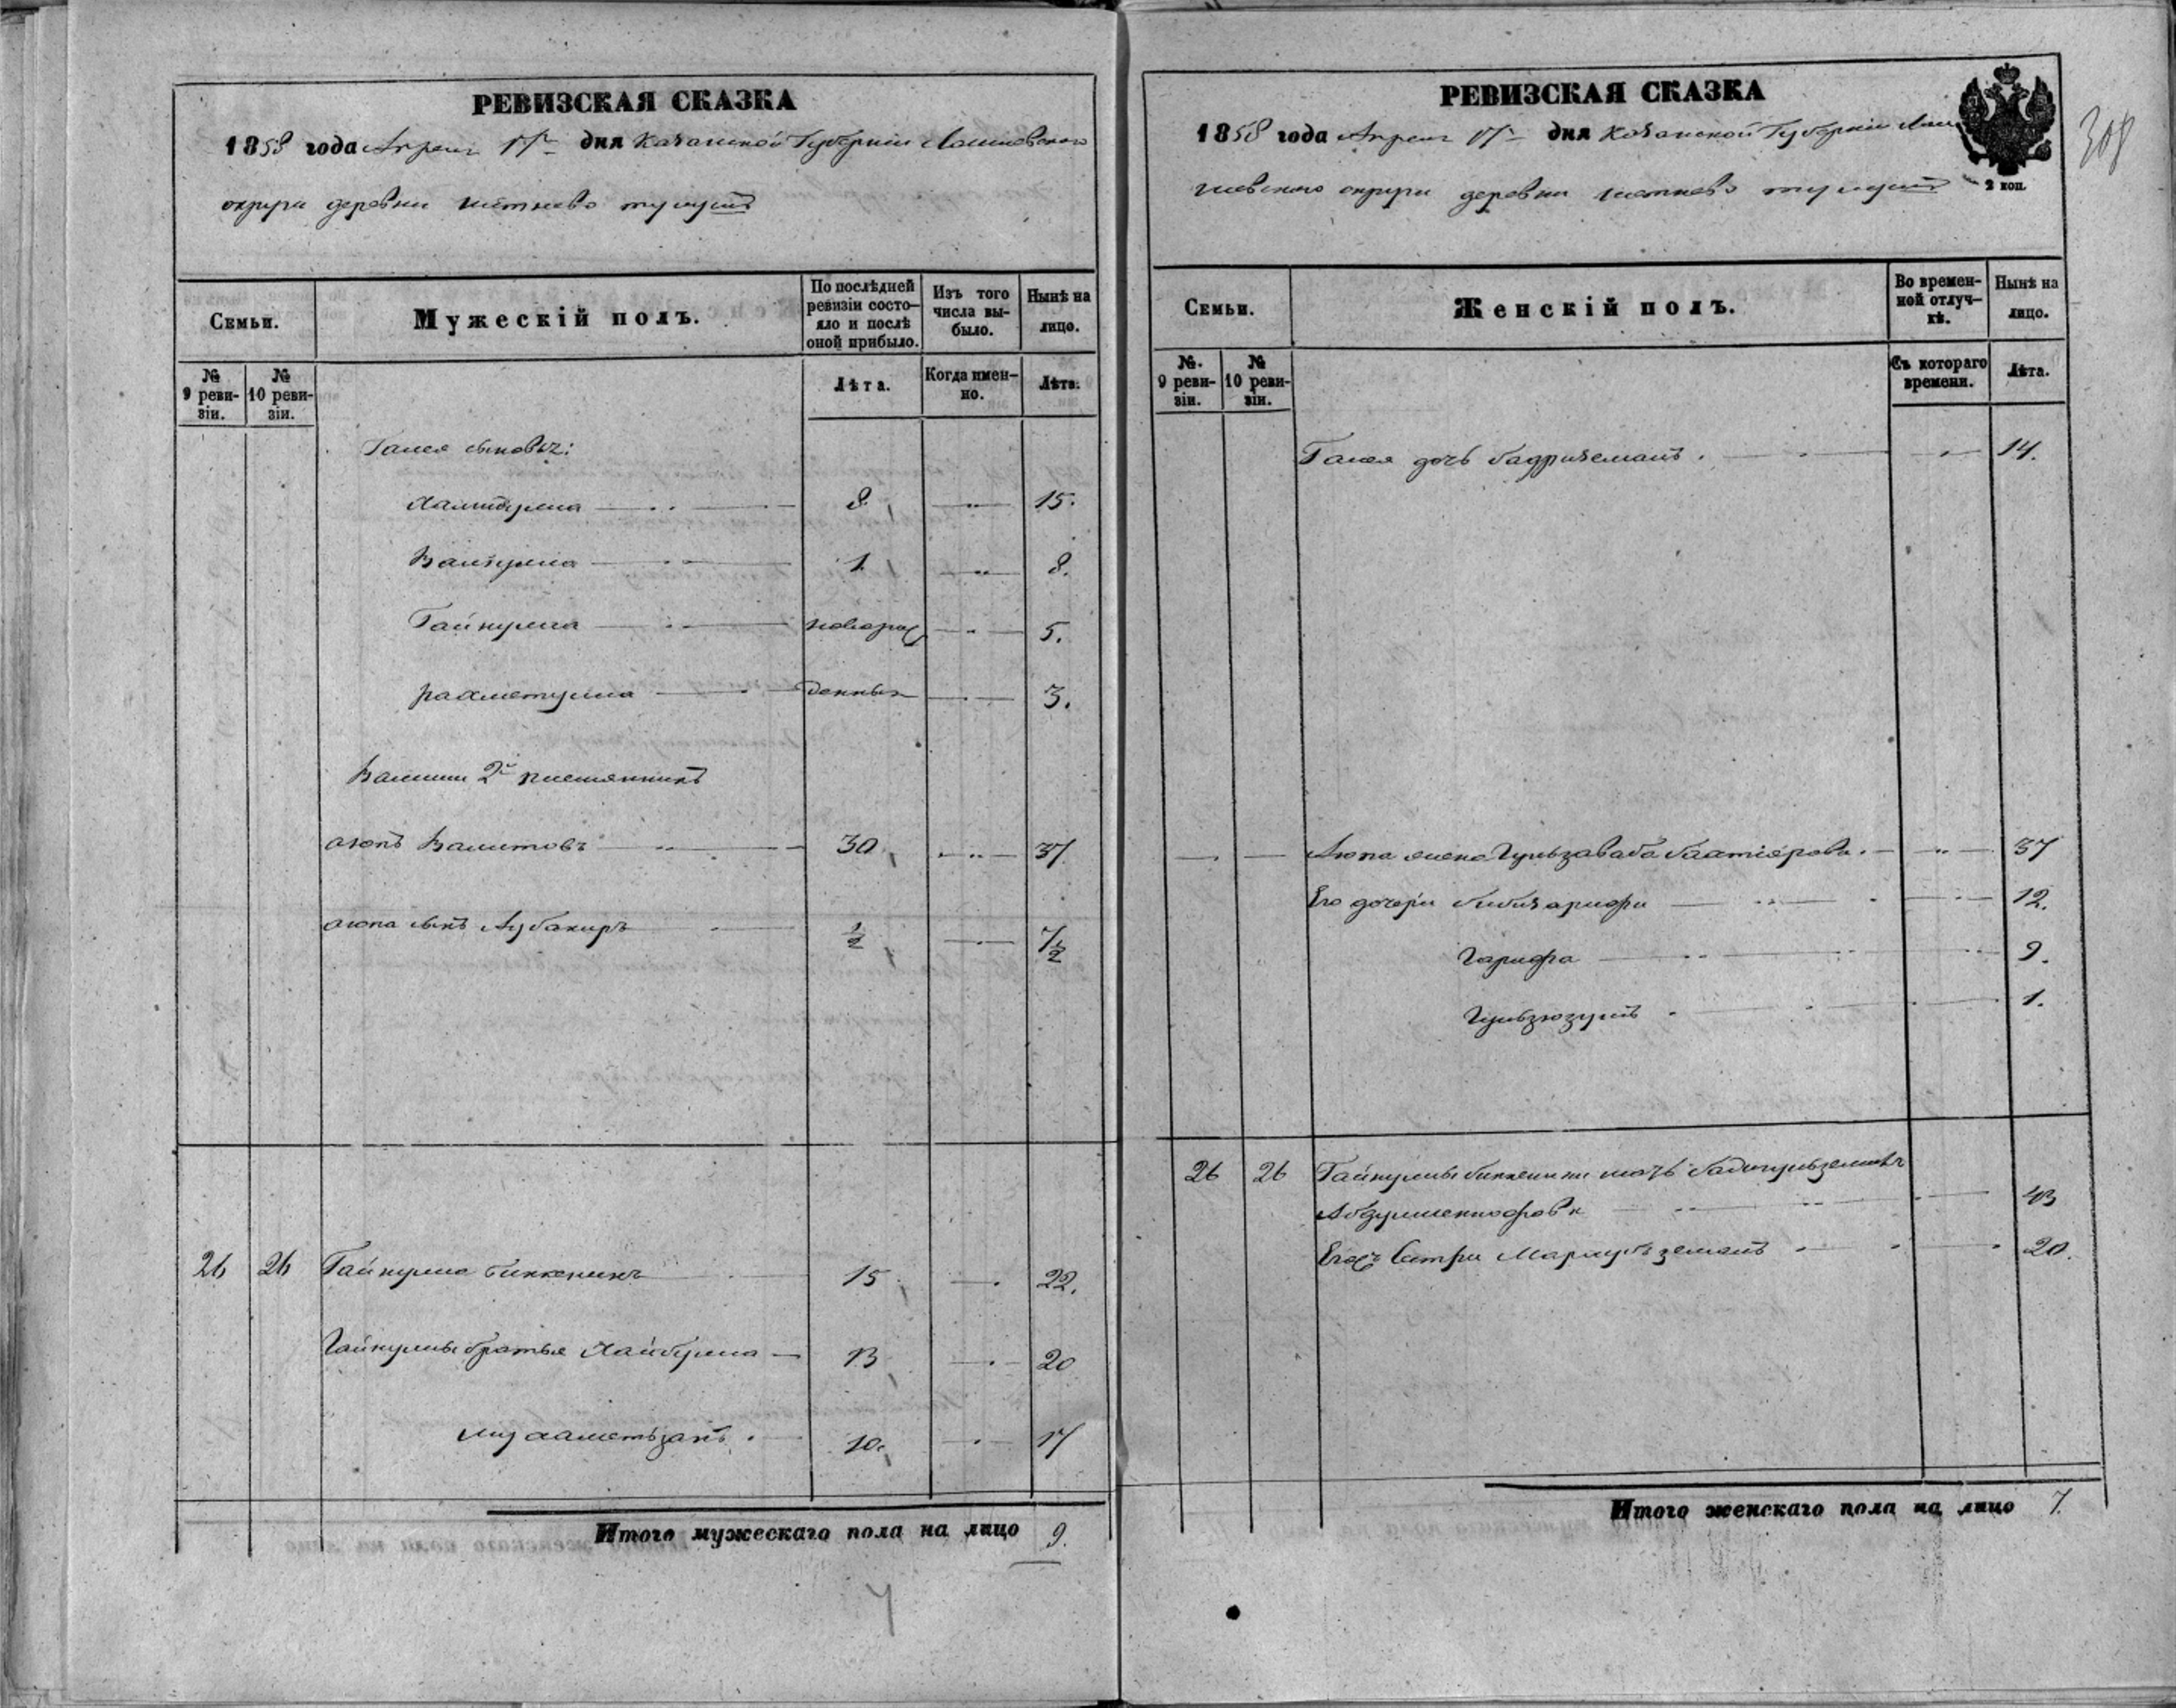 РЕВИЗСКАЯ СКАЗКА
1858 года Апреля 17 дня Казанской Губернiи Лаишевскаго
округа деревни
Семьи.
Мужескiй полъ.
По послѣдней ревизiи состо-
яло и послѣ оной прибыло.
Изъ того числа вы-
было.
Нынѣ на лицо.
№ 9 реви-
зiи.
№ 10 реви-
зiи.
Лѣта.
Когда имен-
но.
Лѣта.
Галея сыновья:
8 15.
1 8.
Гайнулла новорож 5.
Рахметулла денныя 3.
2й племянникъ
Аюпъ Валитовъ 30 37
Аюпа сынъ Аубакиръ ½ 7½
26 26 Гайнулла Биккенинъ 15 22.
Гайнуллы братья Хайбулла 13 20
Мухаметьзянъ 10 17
Итого мужескаго пола на лицо 9.
РЕВИЗСКАЯ СКАЗКА
2 коп.
308
1858 года Апреля 17 дня Казанской Губернiи Лаи
шевскаго округа деревни
Семьи.
Женскiй полъ.
Во времен-
ной отлуч-
кѣ.
Нынѣ на лицо.
№. 9 реви-
зiи.
№ 10 реви-
зiи.
Съ котораго времени.
Лѣта.
Галея дочь Бадриземанъ 14.
Аюпа жена 37
Его дочери Бибизарифа 12.
Гарифа 9.
Гульзюзумъ 1.
26 26 Гайнуллы Биккенина мать
43
сестра 20.
Итого женскаго пола на лицо 7.